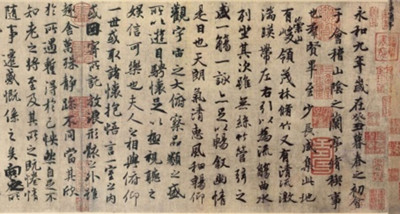 永和九年歲在癸丑暮春之初會
于會稽山陰之蘭亭脩稧事
也羣賢畢至少長咸集此地
有崇山峻領茂林脩竹又有清流激
湍暎帶左右引以為流觴曲水
列坐其次雖無絲竹管弦之
盛一觴一詠亦足以暢敘幽情
是日也天朗氣清惠風和暢仰
觀宇宙之大俯察品類之盛
所以遊目騁懷足以極視聽之
娛信可樂也夫人之相與俯仰
一世或取諸懷抱悟言一室之內
或因寄所託放浪形骸之外雖
趣舍萬殊靜躁不同當其欣
於所遇蹔得於己怏然自足不
知老之將至及其所之既惓情
隨事遷感慨係之矣向之所